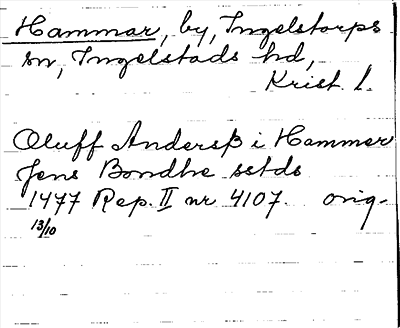 Hammar, by, Ingelstorps
sn, Ingelstads hd,
Krist. l.
Oluff Anderß i Hammer
Jens Bondhe sstds
1477 Rep. II nr 4107. orig.
13/10